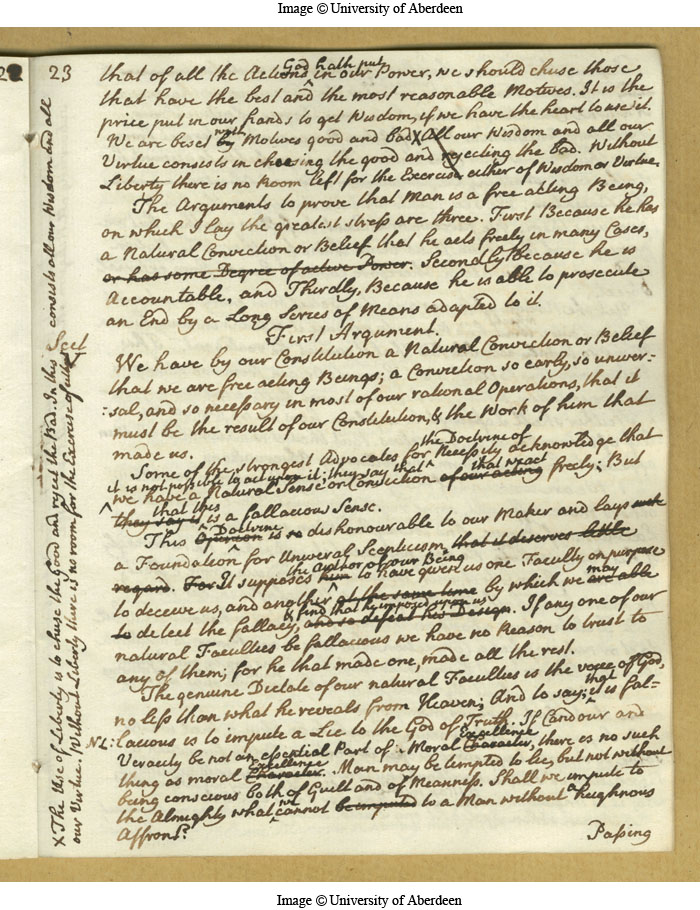 Image © University of Aberdeen
23
that of all the Actions God hath put in our Power, we should chuse those
that have the best and the most reasonable Motives. It is the
price put in our hands to get Wisdom, if we have the heart to use it.
We are beset by with Motives good and bad X All our Wisdom and all our
Virtue consists in choosing the good and rejecting the bad. Without
Liberty there is no Room left for the Exercise either of Wisdom or Virtue.
The Arguments to prove that Man is a free acting Being,
on which I lay the greatest stress are three. First Because he has
a Natural Conviction or Belief that he acts freely in many Cases,
or has some Degree of active Power. Secondly Because he is
Accountable, and Thirdly, Because he is able to prosecute
an End by a Long Series of Means adapted to it.
Sect
First Argument.
We have by our Constitution a Natural Conviction or Belief
that we are free acting Beings; a Conviction so early, so univer-
:sal, and so necessary in most of our rational Operations, that it
must be the result of our Constitution, & the Work of him that
made us.
Some of the strongest Advocates for the Doctrine of Necessity acknowledge that
it is not possible to act upon it: they say that
we have a Natural Sense or Conviction of our acting that we act freely: But
they say it that this is a fallacious Sense.
This Opinion Doctrine is so dishonourable to our Maker and lays such
a Foundation for Universal Scepticism that it deserves little
regard. For It supposes him the Author of our Being to have given us one Faculty on purpose
to deceive us, and another at the same time by which we are able may
to detect the fallacy, and so defeat his Design. & find that he imposed upon us. If any one of our
natural Faculties be fallacious we have no Reason to trust to
any of them; for he that made one, made all the rest.
The genuine Dictate of our natural Faculties is the voice of God,
no less than what he reveals from Heaven; And to say that it is fal-
NL: lacious is to impute a Lie to the God of Truth. If Candour and
Veracity be not an essential Part of Moral Character, Excellence there is no such
thing as moral Character. Excellence Man may be tempted to lie, but not without
being conscious both of Guilt and of Meanness. Shall we impute to
the Almighty what we cannot be imputed to a Man without a heighnous
Affront?
Passing
X The Use of Liberty is to chuse the Good and reject the Bad. In this consists all our Wisdom and all
our Virtue. Without Liberty there is no room for the Exercise of either
Image © University of Aberdeen